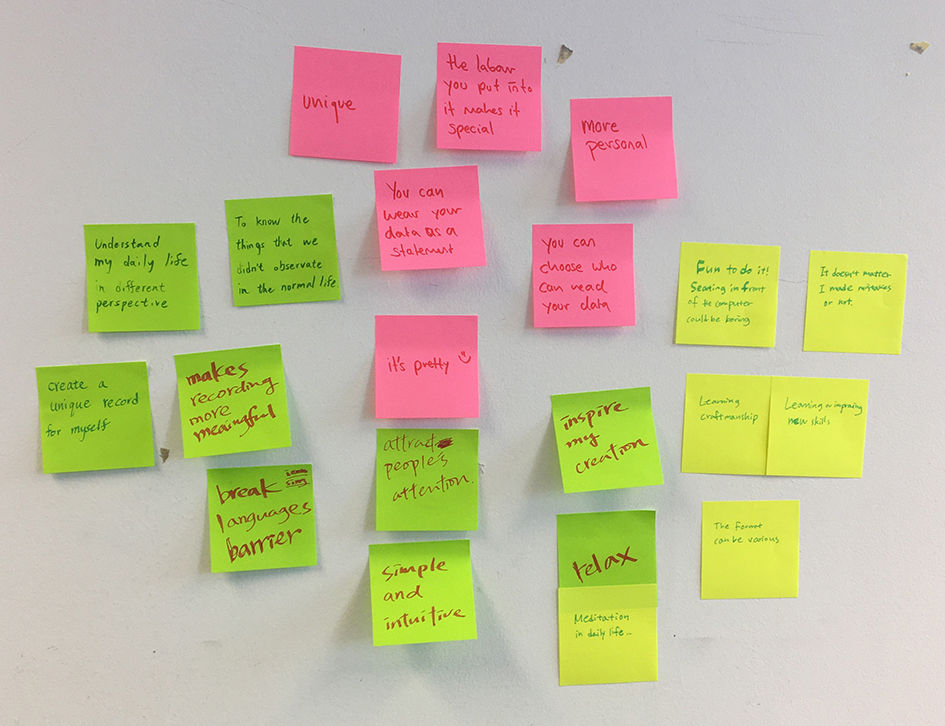 unique
the labour
you put into
it makes it
special
more
personal
You can
wear your
data as a
statement
you can
choose who
can read
your data
Understand
my daily life
in different
perspective
To know the
things that we
didn't observate
in the normal life.
Fun to do it!
Seating in front
of the computer
could be boring
It doesn't matter
I made mistakes
or not.
create a
unique record
for myself
makes
recording
more
meaingful
it's pretty
inspire
my
creation
Learning
craftmanship
Learning or improing
new skills
break
languages
barrier
attract
people's
attention.
relax
The format
can be various
simple
and
intuitive
Meditation
in daily life..